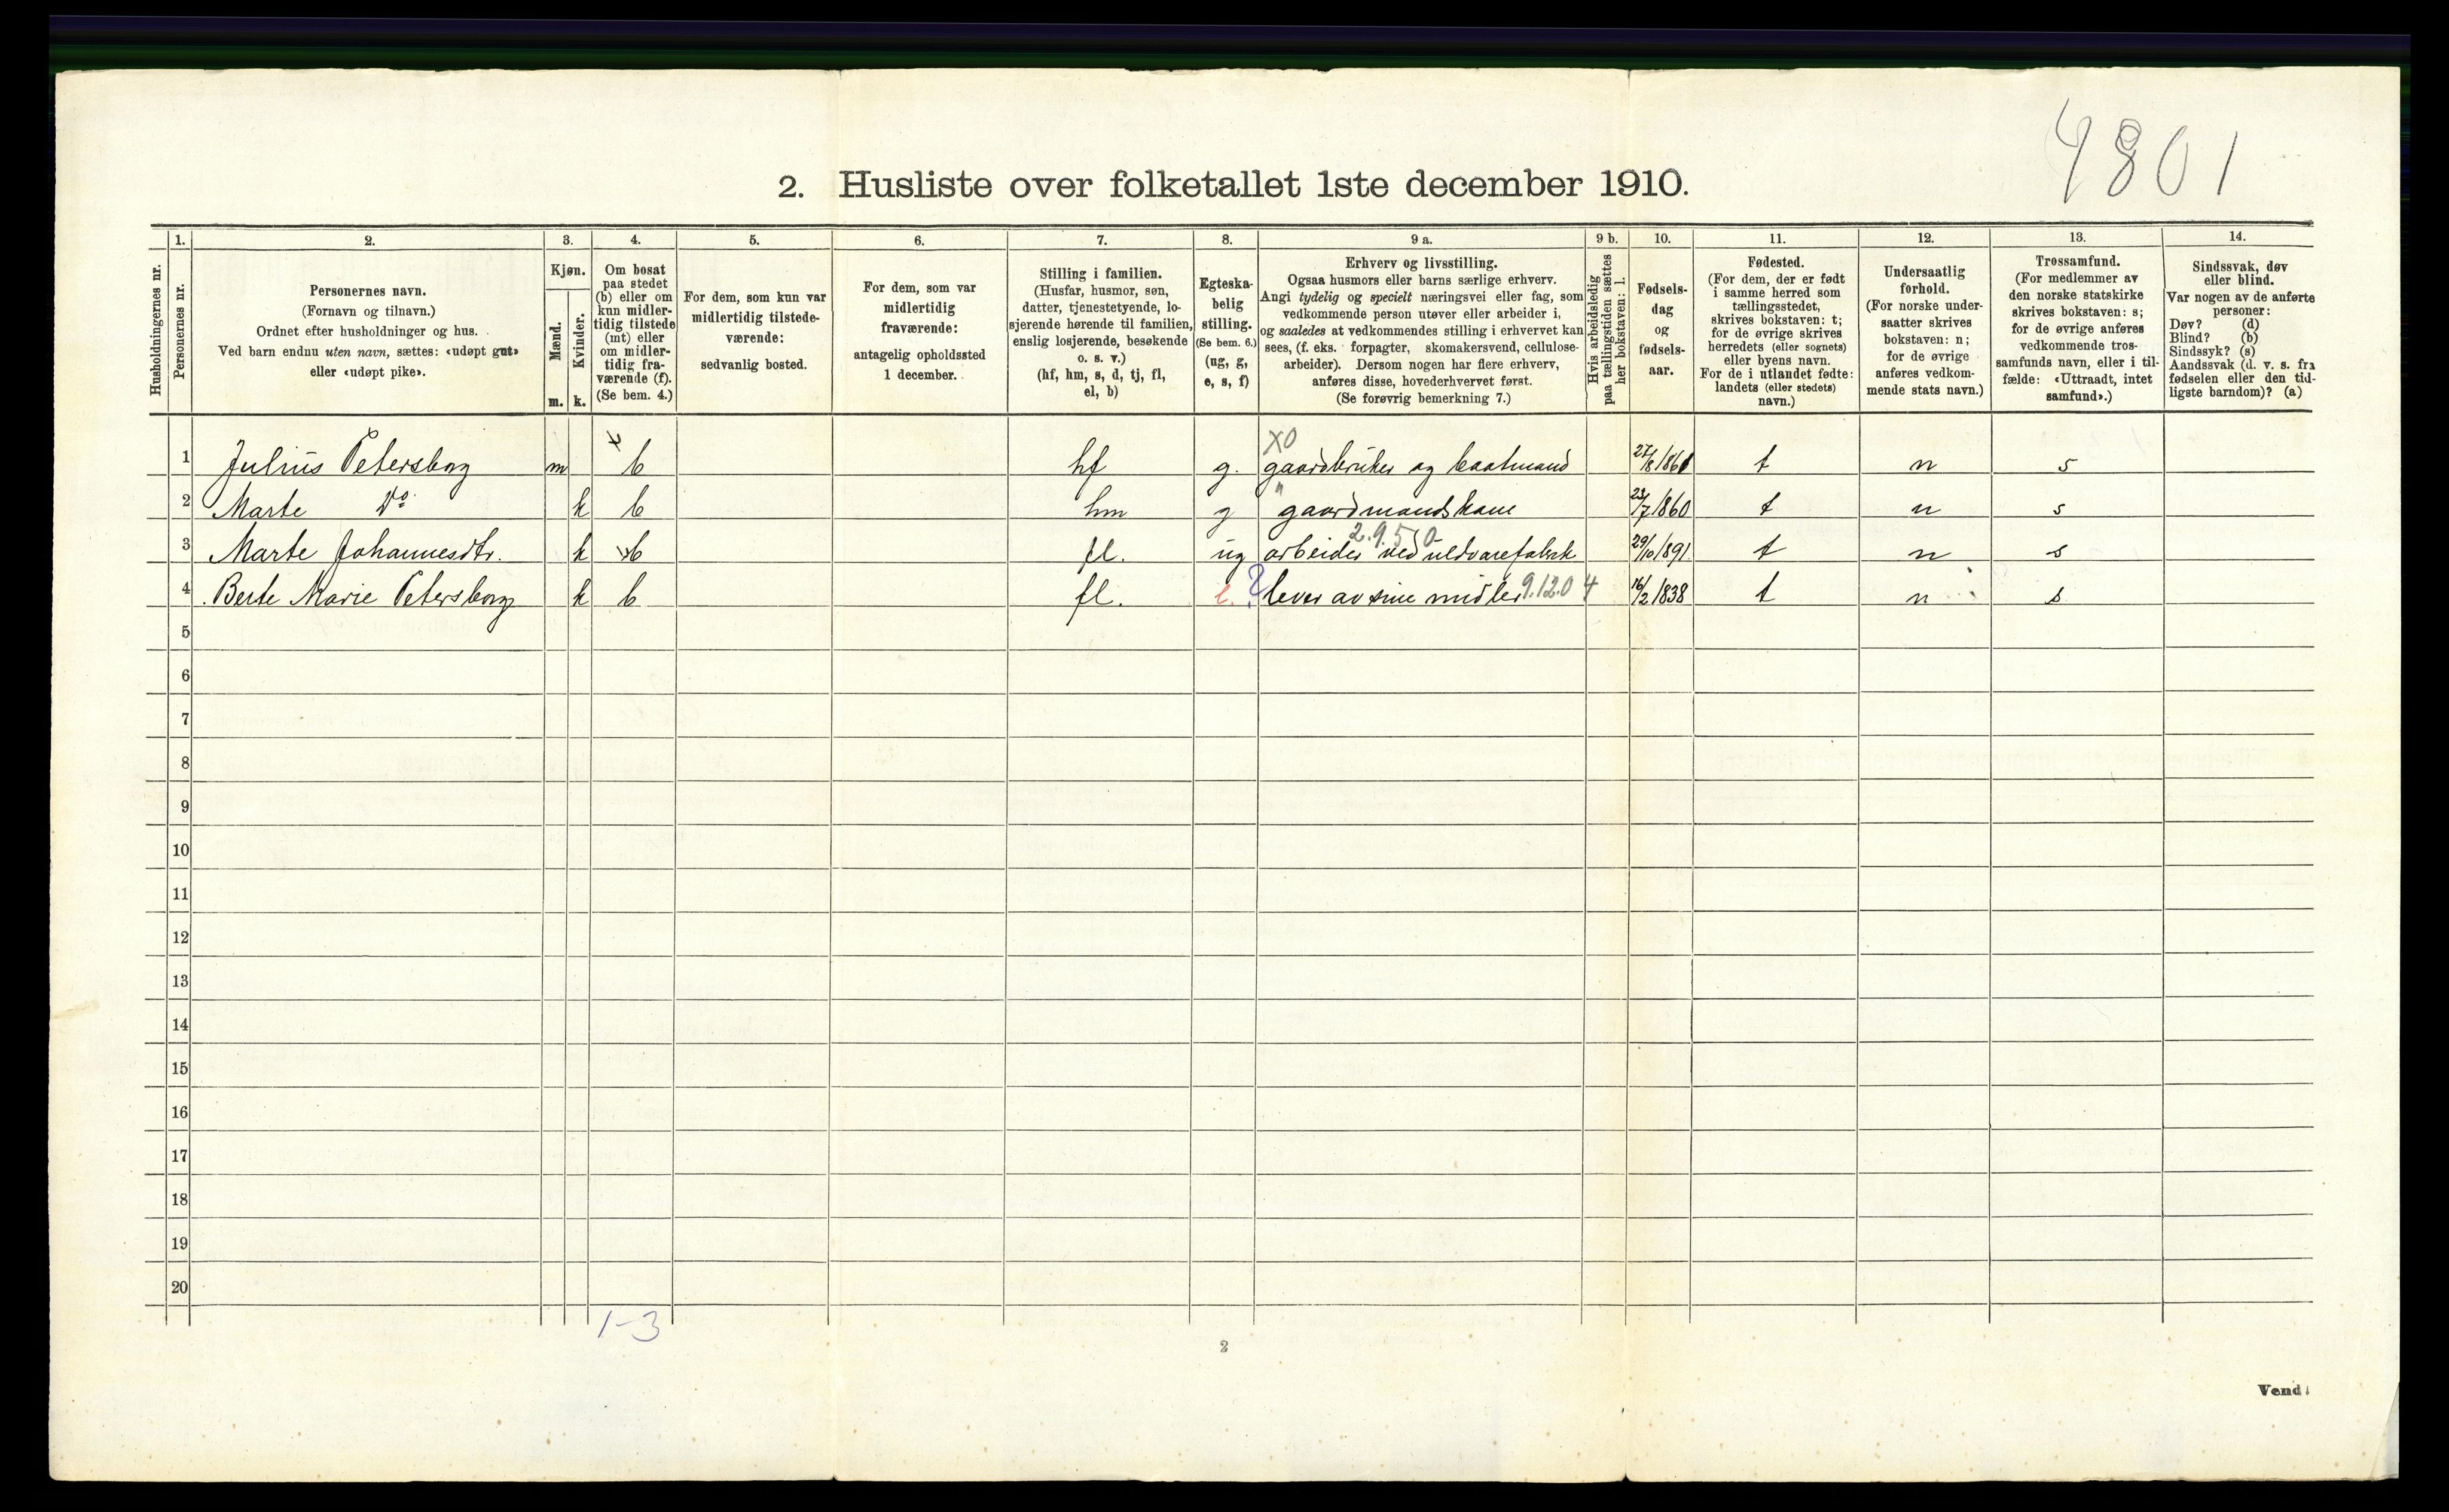 4801
2. Husliste over folketallet 1ste december 1910.
Husholdningernes nr.
1.
Personernes nr.
2.
Personernes navn.
(Fornavn og tilnavn.)
Ordnet efter husholdninger og hus.
Ved barn endnu uten navn, sættes: «udøpt gut»
eller «udøpt pike».
3.
Kjøn.
Mænd.
Kvinder.
m. k.
4.
Om bosat
paa stedet
(b) eller om
kun midler-
tidig tilstede
(mt) eller
om midler-
tidig fra-
værende (f).
(Se bem. 4.)
5.
For dem, som kun var
midlertidig tilstede-
værende:
sedvanlig bosted.
6.
For dem, som var
midlertidig
fraværende:
antagelig opholdssted
1 december.
7.
Stilling i familien.
(Husfar, husmor, søn,
datter, tjenestetyende, lo-
sjerende hørende til familien,
enslig losjerende, besøkende
o. s. v.)
(hf, hm, s, d, tj, fl,
el, b)
8.
Egteska-
belig
stilling.
(Se bem. 6.)
(ug, g,
e, s, f)
9 a.
Erhverv og livsstilling.
Ogsaa husmors eller barns særlige erhverv.
Angi tydelig og specielt næringsvei eller fag, som
vedkommende person utøver eller arbeider i,
og saaledes at vedkommendes stilling i erhvervet kan
sees, (f. eks. forpagter, skomakersvend, cellulose-
arbeider). Dersom nogen har flere erhverv,
anføres disse, hovederhvervet først.
(Se forøvrig bemerkning 7.)
9 b.
Hvis arbeidsledig
paa tællingstiden sættes
her bokstaven: l.
10.
Fødsels-
dag
og
fødsels-
aar.
11.
Fødested.
(For dem, der er født
i samme herred som
tællingsstedet,
skrives bokstaven: t;
for de øvrige skrives
herredets (eller sognets)
eller byens navn.
For de i utlandet fødte:
landets (eller stedets)
navn.)
12.
Undersaatlig
forhold.
(For norske under-
saatter skrives
bokstaven: n;
for de øvrige
anføres vedkom-
mende stats navn.)
13.
Trossamfund.
(For medlemmer av
den norske statskirke
skrives bokstaven: s;
for de øvrige anføres
vedkommende tros-
samfunds navn, eller i til-
fælde: «Uttraadt, intet
samfund».)
14.
Sindssvak, døv
eller blind.
Var nogen av de anførte
personer:
Døv? (d)
Blind? (b)
Sindssyk? (s)
Aandssvak (d. v. s. fra
fødselen eller den tid-
ligste barndom)? (a)
x XO
1 Julius Petersborg m b hf g. gaardbruker og baatmand 27/8 1861 t n s
2 Marte Do k b hm g " gaardmandskone 23/7 1860 t n s
2.9.5 0
3 Marte Johannesdtr. k x b fl. ug arbeider ved uldvarefabrik 29/10 1891 t n s
4 Berte Marie Petersborg k b fl. e. ? lever av sine midler 9.12.0 4 16/2 1838 t n s
5
6
7
8
9
10
11
12
13
14
15
16
17
18
19
20
1-3
2
Vend!